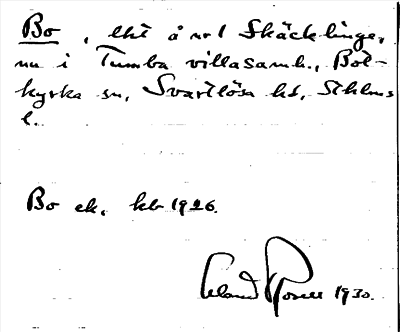 Bo, lht å nr 1 Skäcklinge,
nu i Tumba villasamh., Bot-
kyrka sn, Svartlösa hd, Sthlms
l.
Bo ek. kb 1926.
Roser 1930.